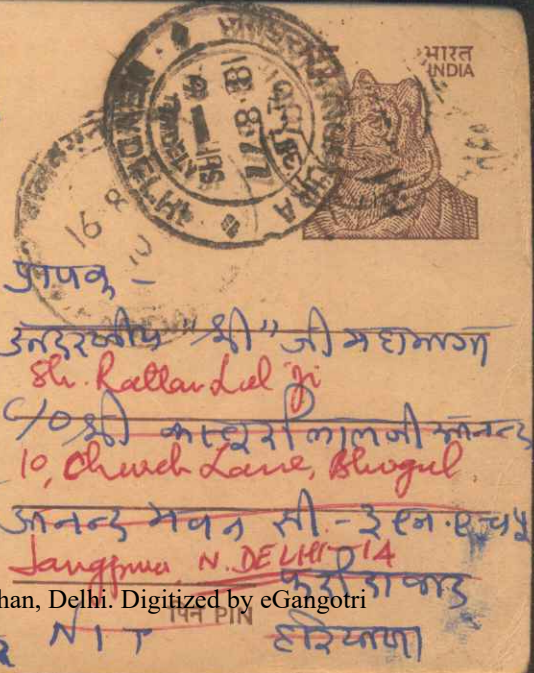 भारत
INDIA
NEW DELHI
18 8 77
16 8
प्रापक -
"श्री" जी महाभागा
Sh. Rattan Lal Ji
C/o श्री कस्तूरी लाल जी आनन्द
10, Church Lane, Bhogul
आनन्द भवन सी. -
Jangpura N. DELHI-14
फरीदाबाद
han, Delhi. Digitized by eGangotri
पिन PIN
NIT हरियाणा